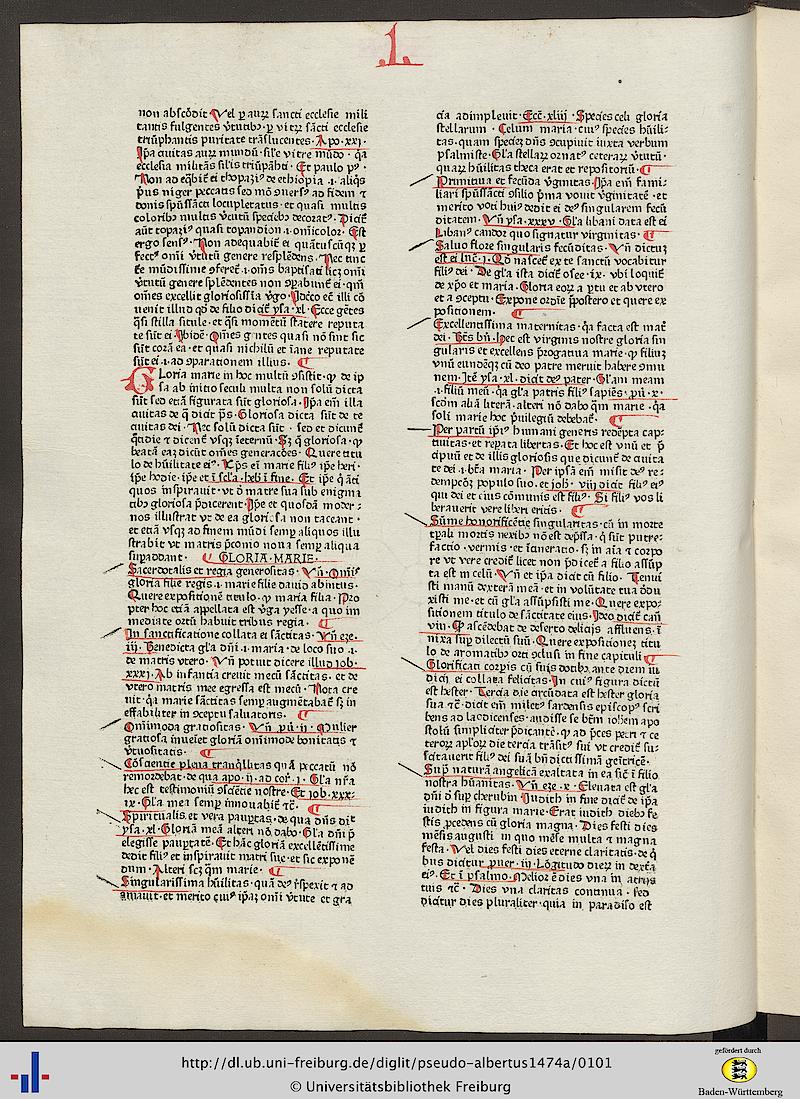 .I.
non abscōdit · Vel ꝑ auꝝ sancti ecclesie mili
tantis fulgentes v̄tutibꝰ · ꝑ vitꝝ sācti ecclesie
triūphantis puritate trāslucentes · Apo · xxi ·
Ip̄a ciuitas auꝝ mundū · sil̄e vitre mūdo · q̄a
ecclesia militās silis triūpāhti · Et paulo pꝰ ·
Non ad eq̄bit̄ ei thopaziꝰ de ethiopia · i · aliq̄s
Dicit̄
aūt topaziꝰ quasi topandion · i · omnicolor · Est
ergo sensꝰ · Non adequabit̄ ei
fectꝰ om̄i v̄tutū genere resplēdens · Nec tinc
v̄tutū genere splēdentes non
om̄es excellit gloriosissīa v̄go · Ideo et̄ illi cō
uenit illud qd̄ de filio dicit̄ ysa · xl · Ecce gētes
q̄si stilla situle · et q̄si momētū statere reputa
te sūt ei · Ibidē · Om̄es gentes quasi nō sint sic
sūt corā ea · et quasi nichilū et īane reputate
sūt ei · i · ad ꝯparationem illius ·
Gloria marie in hoc multū ꝯsistit · ꝙ de ip
sa ab initio seculi multa non solū dicta
sūt sed etiā figurata sūt gloriosa · Ip̄a em̄ illa
ciuitas de q̄ dicit p̄s · Gloriosa dicta sūt de te
ciuitas dei · Nec solū dicta sūt · sed et dicunt̄
beatā eaꝫ dicūt om̄es generacōes · Quere titu
lo de hūilitate eiꝰ · Xp̄s em̄ marie filiꝰ ip̄e heri ·
ip̄e hodie · ip̄e et ī scl̄a · heb̄ ī fine · Et ip̄e q̄ āti
quos inspirauit · vt d̄ matre sua sub enigma
tibꝰ gloriosa p̄dicerent · Ip̄e et quosdā moder ·
nos illustrat vt de ea gloriosa non taceant ·
et etiā vsqꝫ ad finem mūdi semꝑ aliquos illu
strabit vt matris p̄conio noua semꝑ aliqua
supaddant · GLORIA · MARIE ·
Sacerdotalis et regia generositas · Vn̄ · Om̄is
gloria filie regis · i · marie filie dauid abintus ·
Quere expositionē titulo · ꝙ maria filia · Pro
pter hoc etiā appellata est v̄ga yesse · a quo im
mediate ortū habuit tribus regia ·
In sanctificatione collata ei sāctitas · Vn̄ eze ·
iij · Benedicta gl̄a dn̄i · i · maria · de loco suo · i ·
de matris vtero · Vn̄ potuit dicere illud iob ·
xxxi · Ab infantia creuit mecū sāctitas · et de
vtero matris mee egressa est mecū · Nota cre
uit · q̄a marie sāctitas semꝑ augmētabat̄ sꝫ in
effabiliter in ꝯceptu saluatoris ·
Om̄imoda gratiositas · Vn̄ · ꝓū · ij · Mulier
gratiosa inueīet gloriā om̄imode bonitatis ⁊
v̄tuositatis ·
Cōscientie plena tranq̄llitas quā peccatū nō
remordebat · de qua apo · ij · ad cor̄ · i · Gl̄a nr̄a
hec est testimoniū ꝯsciētie nostre · Et iob · xxx ·
ix · Gl̄a mea semꝑ innouabit̄ ⁊c̄ ·
Spiritualis et vera pauꝑtas · de qua dn̄s dīt
ysa · xl · Gloriā meā alteri nō dabo · Gl̄a dn̄i p̄
elegisse pauꝑtatē · Et hāc gloriā excellētissime
dedit filiꝰ et inspirauit matri sue · et sic exponē
dum · Alteri scꝫ qm̄ marie ·
Singularissima hūilitas · quā deꝰ r̄spexit ⁊ ad
amauit · et merito cuiꝰ ip̄aꝫ om̄i v̄tute et gra
cia adimpleuit · Eccī · xliij · Species celi gloria
stellarum · Celum maria · cuiꝰ species hūili-
tas · quam speciēꝫ dn̄s ꝯcupiuit iuxta verbum
psalmiste · Gl̄a stellaꝝ ornatꝰ ceteraꝝ v̄tutū ·
quaꝝ hūilitas theca erat et repositoriū ·
Primitiua et fecūda v̄ginitas · Ip̄a em̄ fami-
liari spūssācti ꝯsilio p̄ma vouit v̄ginitatē · et
merito voti huiꝰ dedit ei deꝰ singularem fecū
ditatem · Vn̄ ysa · xxxv · Gl̄a libani data est ei
Libanꝰ candor quo signatur virginitas ·
Saluo flore singularis fecūditas · Vn̄ dictuꝫ
est ei luc̄ · i · Qd̄ nascet̄ ex te sanctū vocabitur
filiꝰ dei · De gl̄a ista dicit̄ osee · ix · vbi loquit̄
de xp̄o et maria · Gloria eoꝝ a ꝑtu et ab vtero
et a ꝯceptu · Expone ordīe p̄postero et quere ex
positionem ·
Excellentissima maternitas · q̄a facta est mat̄
dei · Hec est virginis nostre gloria sin
gularis et excellens p̄rogatiua marie · ꝙ filiuꝫ
vnū eundēqꝫ cū deo patre meruit habere ꝯmu
nem · Itē ysa · xl · dicit deꝰ pater · Gl̄am meam
· i · filiū meū · q̄a gl̄a patris filiꝰ sapiēs · ꝓū · x ·
scd̄m aliā literā · alteri nō dabo qm̄ marie · q̄a
soli marie hoc p̄uilegiū debebat̄ ·
Per partū ip̄iꝰ humani generis redēpta cap-
tiuitas · et reꝑata libertas · Et hoc est vnū et p̄
cipuū et de illis gloriosis que dicunt̄ de ciuita
te dei · i · bt̄a maria · Per ipsā em̄ misit deꝰ re-
dempcōꝫ populo suo · et ioh̄ · viij dicit filiꝰ eiꝰ
qui dei et eius cōmunis est filiꝰ · Si filiꝰ vos li
berauerit vere liberi eritis ·
Sūme honorificētie singularitas · cū in morte
tꝑali mortis nexibꝰ nō est dep̄ssa · q̄ sūt putre-
factio · vermis · et īcineratio · sꝫ in aīa ⁊ corpo
re vt vere credit̄ licet non p̄dicet̄ a filio assūp
ta est in celū · Vn̄ et ip̄a dicit cū filio · Tenui
sti manū dexterā meā · et in volūtate tua ddu
xisti me · et cū gl̄a assūpsisti me · Quere expo-
sitionem titulo de sāctitate eius · Ideo dicit̄ can̄
viij · ꝙ ascēdebat de deserto delicijs affluens · ī
nixa suꝑ dilectū suū · Quere expositionēꝫ titu
lo de aromatibꝰ orti ꝯclusi in fine capituli
Glorificati corꝑis cū suis dotibꝰ ante diem iu
dicij ei collata felicitas · In cuiꝰ figura dictū
est hester · Tercia die circūdata est hester gloria
sua ⁊c̄ · dicit em̄ milet̄ sardensis episcopꝰ scri
bens ad laodicenses · audisse se bt̄m ioh̄em apo
stolū simpliciter p̄dicantē · ꝙ ad p̄ces petri ⁊ ce
teroꝝ apl̄oꝝ die tercia trāsitꝰ sui vt credit̄ su-
scitauerit filiꝰ dei suā bn̄dictissimā genitricē ·
Supra naturā angelicā exaltata in ea sic̄ ī filio
nostra hūanitas · Vn̄ eze · x · Eleuata est gl̄a
dn̄i d̄ suꝑ cherubin · Judith in fine dicit̄ de ip̄a
iudith in figura marie · Erat iudith diebꝰ fe-
stis p̄cedens cū gloria magna · Dies festi dies
mēsis augusti in quo mēse multa ⁊ magna
festa · Vel dies festi dies eterne claritatis · de q̄
bus dicitur ꝓuer · iij · Lōgitudo dieꝝ in dext̄a
eiꝰ · Et ī psalmo · Melior ē dies vna in atrijs
tuis ⁊c̄ · Dies vna claritas continua · sed
dicitur dies pluraliter · quia in paradiso est
http://dl.ub.uni-freiburg.de/diglit/pseudo-albertus1474a/0101
© Universitätsbibliothek Freiburg
gefördert durch
Baden-Württemberg